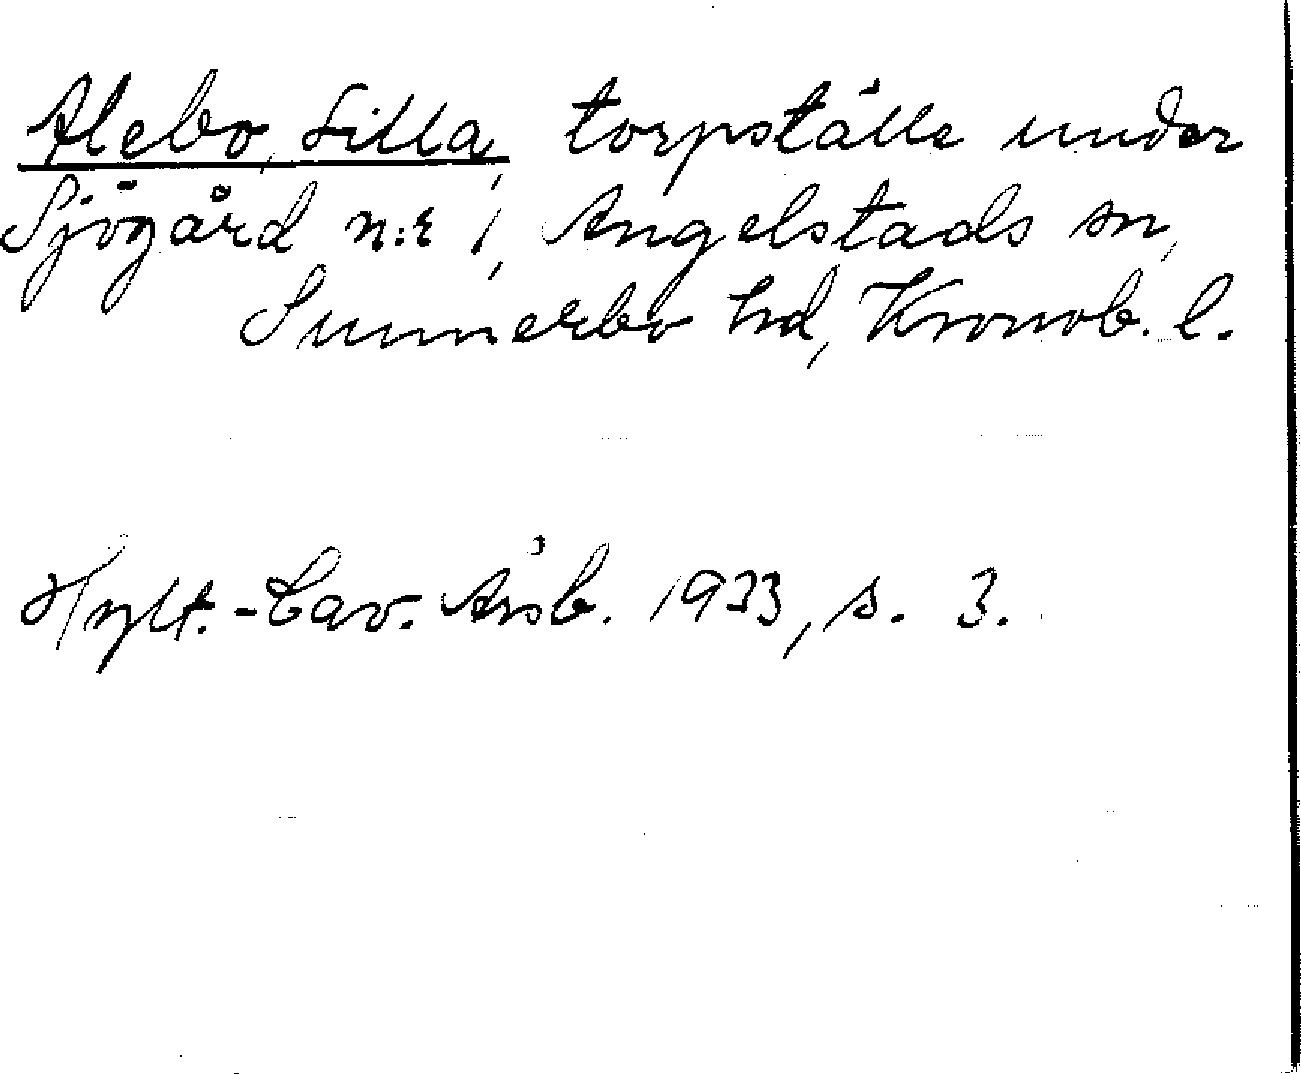 Alebo, Lilla, torpställe under
Sjögård n:r 1, Angelstads sn,
Sunnerbo hd, Kronob. l.
Hylt.-Cav. Årsb. 1933, s. 3.